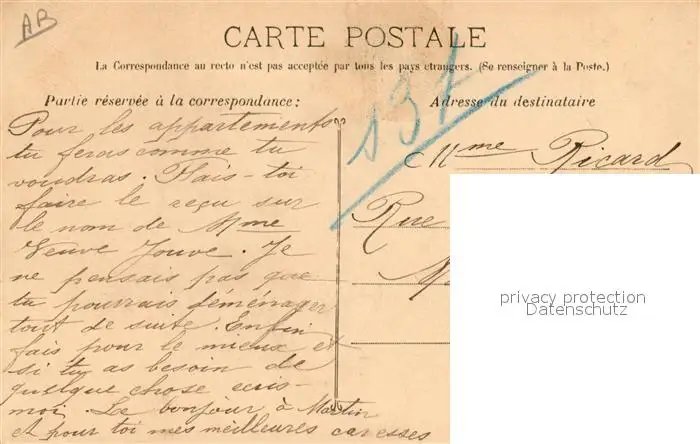 AB
CARTE POSTALE
La Correspondance au recto n'est pas acceptée par tous les pays etrangers. (Se renseigner à la Poste.)
Partie réservée à la correspondance:
Adresse du destinataire
137
Pour les appartements
tu feras comme tu
voudras. Fais-toi
faire le reçu sur
le nom de Mme
Veuve Jouve. Je
ne pensais pas que
tu pourrais déménager
tout de suite. Enfin
fais pour le mieux et
si tu as besoin de
quelque chose ecris-
moi. Le bonjour à Martin
et pour toi mes meilleures caresses
Mme Ricard
Rue
privacy protection
Datenschutz